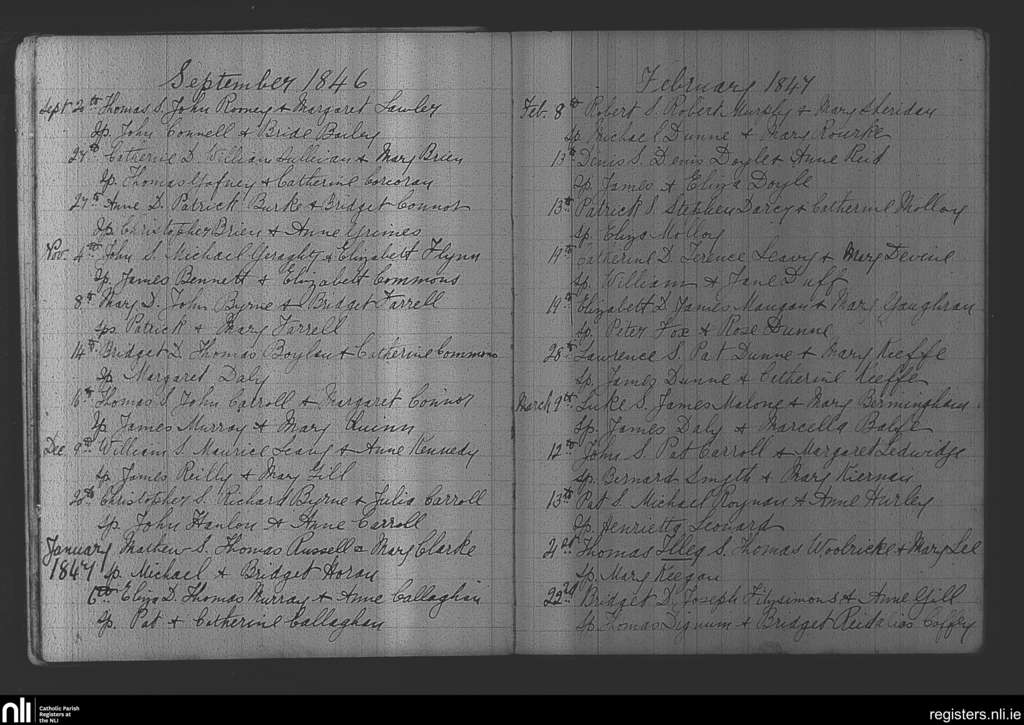 September 1846
Sept 2th Thomas S. John Rooney & Margaret Lawley
Sp. John Connell & Bride Bailey
24th Catherine D. William Sullivan & Mary Brien
Sp. Thomas Gafney & Catherine Corcoran
27th Anne D. Patrick Burke & Bridget Connor
Sp. Christopher Brien & Anne Grimes
Nov. 4th John S. Michael Geraghty & Elizabett Flynn
Sp. James Bennett & Elizabett Commons
8th Mary D. John Byrne & Bridget Farrell
Sps Patrick & Mary Farrell
14th Bridget D. Thomas Boylan & Catherine Commons
Sp Margaret Daly
16th Thomas S. John Carroll & Margaret Connor
Sp James Murray & Mary Quinn
Dec. 9th William S. Maurice Leavy & Anne Kennedy
Sp. James Reilly & Mary Gill
20th Christopher S. Richard Byrne & Julia Carroll
Sp. John Hanlon & Anne Carroll
January Mathew S. Thomas Russell & Mary Clarke
1847 Sp. Michael & Bridget Horan
6th Eliza D. Thomas Murray & Anne Callaghan
Sp. Pat & Catherine Callaghan
February 1847
Feb. 8th Robert S. Robert Murphy & Mary Sheridan
Sp. Michael Dunne & Mary Rourke
Denis S. Denis Doyle & Anne Reid
Sp. James & Eliza Doyle
13th Patrick S. Stephen Darcy & Catherine Molloy
Sp. Eliza Molloy
Catherine D. Terence Leavy & Mary Devine
Sp. William & Jane Duff
14th Elizabett D. James Mangan & Mary Gaughran
Sp. Peter Fox & Rose Dunne
28th Lawrence S. Pat Dunne & Mary Kieffe
Sp. James Dunne & Catherine Kieffe
March 9th Luke S. James Malone & Mary Bermingham
Sp. James Daly & Marcella Balfe
12th John S. Pat Carroll & Margaret Ledwidge
Sp. Bernard Smyth & Mary Kiernan
13th Pat S. Michael & Anne Hurley
Sp. Henrietta Leonard
21st Thomas Illeg S. Thomas Woolricke & Mary Lee
Sp. Mary Keegan
22nd Bridget D. Joseph Fitzsimons & Anne Gill
Sp. Thomas Dignum & Bridget Reid alias Coffey
nli
Catholic Parish
Registers at
the NLI
registers.nli.ie